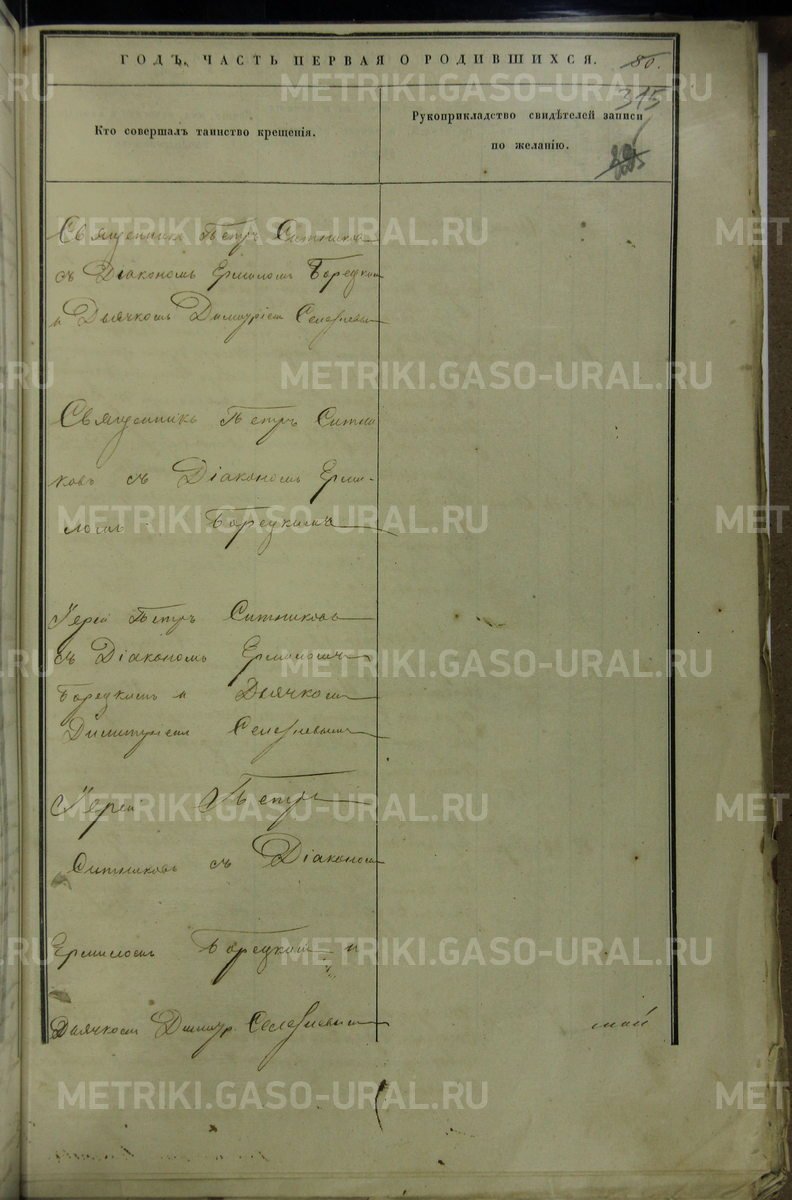 ГОДЪ, ЧАСТЬ ПЕРВАЯ О РОДИВШИХСЯ.
80.
315
Кто совершалъ таинство крещенія.
Рукоприкладство свидѣтелей записи
по желанію.
Священникъ Петръ Ситниковъ
съ Діакономъ Ермиломъ Борецкимъ
и Дьячкомъ Димитріемъ
Священникъ Петръ Ситни
ковъ съ Діакономъ Ерми-
ломъ Борецкимъ
Іерей Петръ Ситниковъ
съ Діакономъ Ермиломъ
Борецкимъ и Дьячкомъ
Димитріемъ
Іерей Петръ
Ситниковъ съ Діакономъ
Ермиломъ Борецкимъ и
Дьячкомъ Димитр.
METRIKI.GASO-URAL.RU